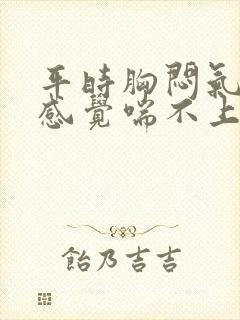 平時胸悶氣
感覺喘不上
飴乃吉吉